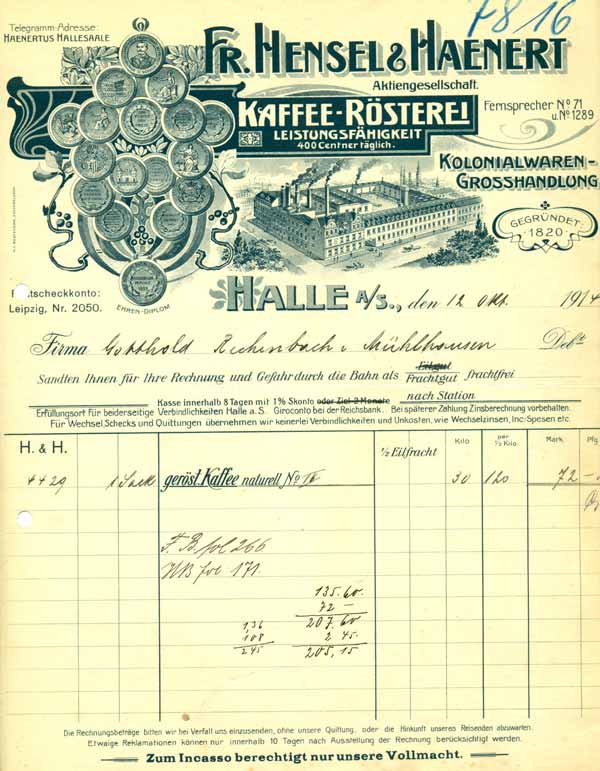 78 16
Telegramm-Adresse
HAENERTUS HALLESAALE
FR. HENSEL & HAENERT
Aktiengesellschaft.
KAFFEE-RÖSTEREI
LEISTUNGSFÄHIGKEIT
400 Centner täglich.
Fernsprecher No 71
u. No 1289
KOLONIALWAREN-
GROSSHANDLUNG
GEGRÜNDET
1820
EHREN-DIPLOM
Postscheckkonto:
Leipzig, Nr. 2050.
HALLE A/S., den 12 Okt. 1914
Firma Gotthold Rechenbach i. Mühlhausen Debt
Sandten Ihnen für Ihre Rechnung und Gefahr durch die Bahn als Eilgut Frachtgut frachtfrei
nach Station
Kasse innerhalb 8 Tagen mit 1% Skonto oder Ziel 2 Monate
Erfüllungsort für beiderseitige Verbindlichkeiten Halle a. S. Giroconto bei der Reichsbank. Bei späterer Zahlung Zinsberechnung vorbehalten.
Für Wechsel, Schecks und Quittungen übernehmen wir keinerlei Verbindlichkeiten und Unkosten, wie Wechselzinsen, Inc.-Spesen etc.
H. & H. ½ Eilfracht Kilo per ½ Kilo. Mark. Pfg
4429 1 Sack geröst. Kaffee naturell No IV 30 120 72 –
F. B. fol 266
HB fol 171.
135.60.
72 –
136 207.60
108 2 45.
245 205,15
Die Rechnungsbeträge bitten wir bei Verfall uns einzusenden, ohne unsere Quittung, oder die Hinkunft unseres Reisenden abzuwarten.
Etwaige Reklamationen können nur innerhalb 10 Tagen nach Ausstellung der Rechnung berücksichtigt werden.
Zum Incasso berechtigt nur unsere Vollmacht.